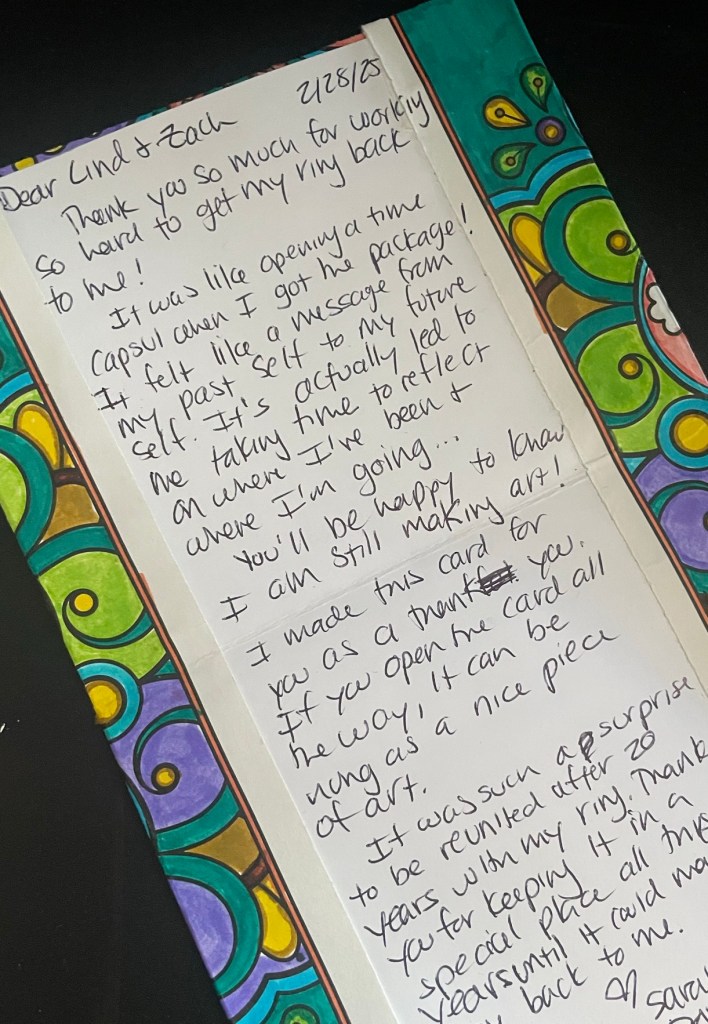 2/28/25
Dear Lind & Zach
Thank you so much for working
so hard to get my ring back
to me!
It was like opening a time
capsul when I got the package!
It felt like a message from
my past self to my future
self. It's actually led to
me taking time to reflect
on where I've been &
where I'm going...
You'll be happy to know
I am still making art!
I made this card for
you as a thank you.
If you open the card all
the way, it can be
hung as a nice piece
of art.
It was such a surprise
to be reunited after 20
years with my ring. Thank
you for keeping it in a
special place all
years until it could
back to me.
♡ Sara